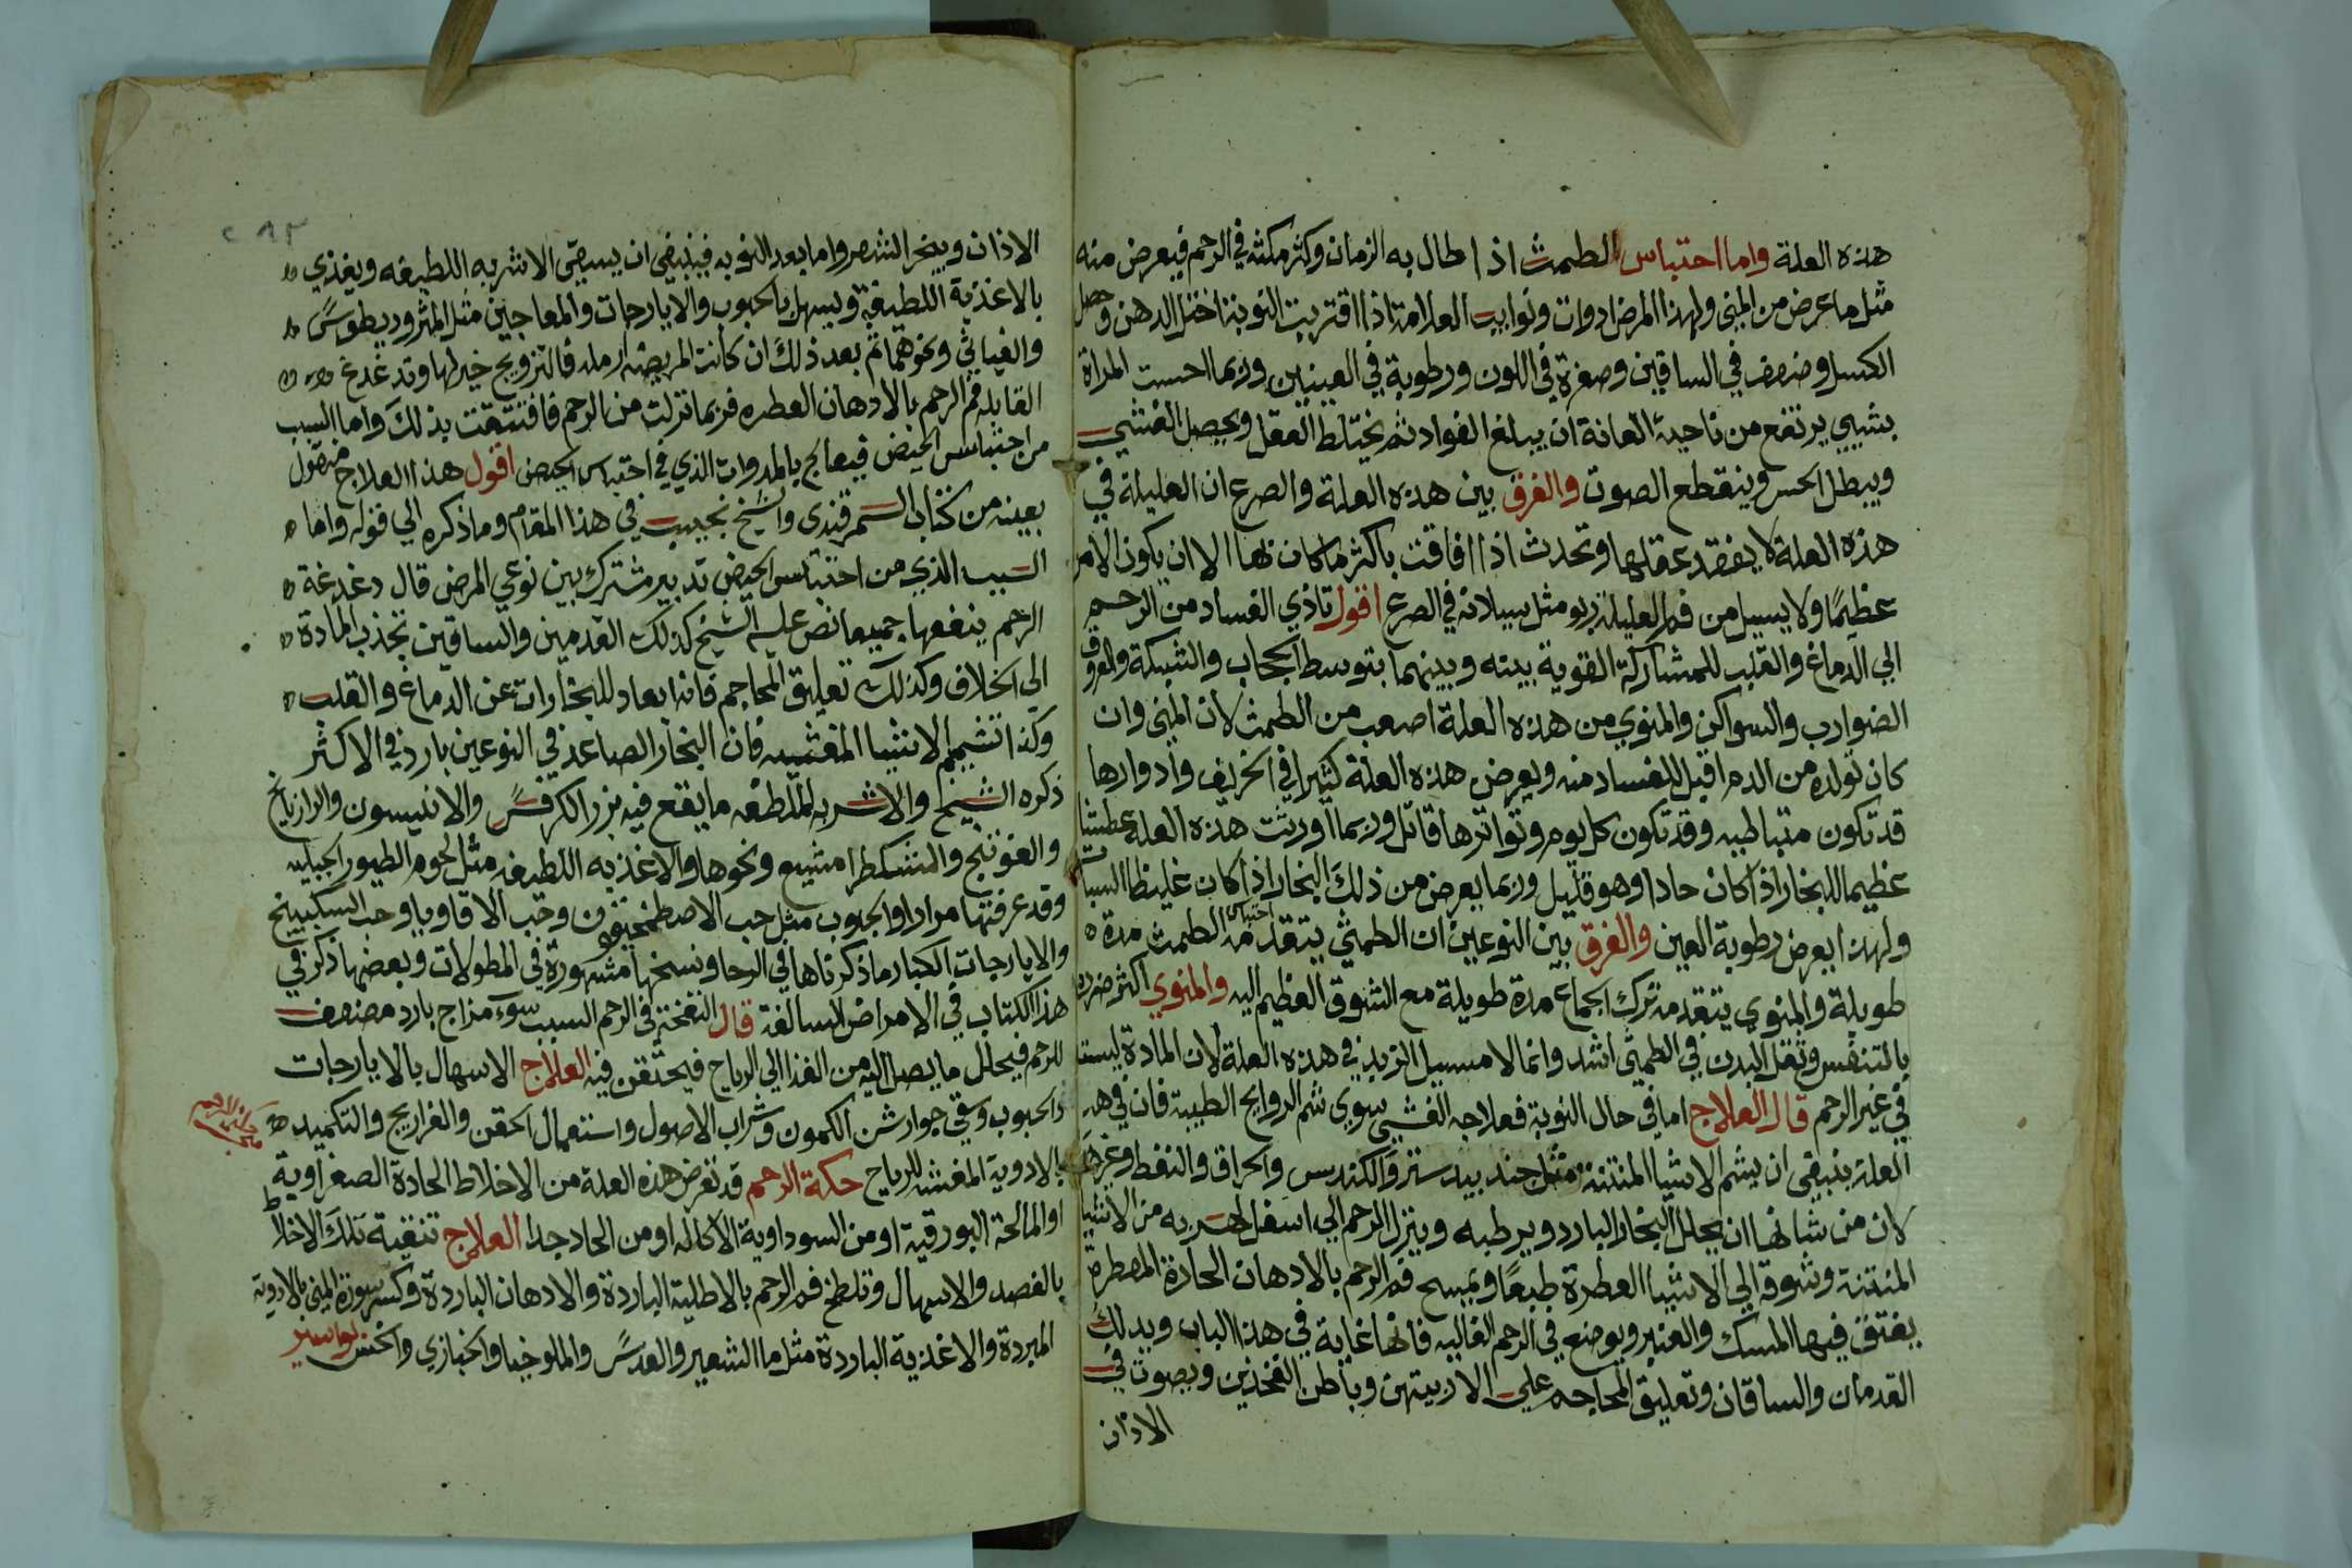 هذه العلة واما احتباس الطمث اذا طال به الزمان وكثر مكثه في الرحم فيعرض منه
مثل ما عرض من المني ولهذا المرض ادوات ونوايب العلامة اذا اقتربت النوبة اختل الدهن وحصل
الكسل وضعف في الساقين وصفرة في اللون ورطوبة في العينين وربما احست المراة
بشيي يرتفع من ناحية العانة ان يبلغ الفواد ثم يختلط العقل ويحصل الغشي
ويبطل الحس وينقطع الصوت والفرق بين هذه العلة والصرع ان العليلة في
هذه العلة لا يفقد عقلها وتحدث اذا افاقت باكثر ما كان بها الا ان يكون الامر
عظيمًا ولا يسيل من فم العليلة زبو مثل سيلانه في الصرع اقول تاذي الفساد من الرحم
الي الدماغ والقلب للمشاركة القوية بينه وبينهما بتوسط الحجاب والشبكة والعروق
الضوارب والسواكن والمنوي من هذه العلة اصعب من الطمث لان المني وان
كان تولده من الدم اقبل للفساد منه ويعرض هذه العلة كثيرا في الخريف وادوارها
قد تكون متباطيه وقد تكون كل يوم وتواترها قاتل وربما اورثت هذه العلة عطشا
عظيما للبخار اذا كان حادا وهو قليل وربما يعرض من ذلك البخار اذا كان غليظا السبات
ولهذا يعرض رطوبة العين والفرق بين النوعين ان الطمثي يتقدمه احتباس الطمث مدة
طويلة والمنوي يتقدمه ترك الجماع مدة طويلة مع الشوق العظيم اليه والمنوي اكثر ضرره
بالتنفس وثقل البدن في الطمثي اشد وانما لا مسيل الزبد في هذه العلة لان المادة ليست
في غير الرحم قال العلاج اما في حال النوبة فعلاجه الغشي سوى شم الروايح الطيبة فان في هذه
العلة ينبغي ان يشم الاشيا المنتنة مثل جند بيدستر والكندس والحراق والنفط وغيرها
لان من شانها ان يحلل البخار البارد ويرطبه وينزل الرحم الي اسفل لهربه من الاشيا
المنتنة وشوقه الي الاشيا العطرة طبعًا ويمسح فم الرحم بالادهان الحارة المعطرة
يفتق فيها المسك والعنبر ويوضع في الرحم الغاليه فانها غاية في هذا الباب ويدلك
القدمان والساقان وتعليق المحاجم علي الاربيتهن وباطن الفخذين ويصوت في
الاذان
الاذان ويبخر الشعر واما بعد النوبه فينبغي ان يسقي الاشربه اللطيفه ويغذي
بالاغذية اللطيفة ويسهل بالحبوب والايارجات والمعاجين مثل المثروديطوس
والغياثي ونحوهما ثم بعد ذلك ان كانت المريضة ارمله فالتزويج خير لها وتدغدغ
القابله فم الرحم بالادهان العطره فربما نزلت من الرحم فافتتقت بذلك واما السبب
من احتباس الحيض فيعالج بالمدروات الذي في احتباس الحيض اقول هذا العلاج منقول
بعينه من كتاب السمرقندى والشيخ نجيب في هذا المقام وما ذكره الي قوله واما
السبب الذي من احتباس الحيض تدبير مشترك بين نوعي المرض قال دغدغة
الرحم ينفعها جميعا نص عليه الشيخ كذلك القدمين والساقين تجذب المادة
الي الخلاف وكذلك تعليق المحاجم فانه ابعاد للبخارات عن الدماغ والقلب
وكذا تشيم الاشيا المغشيه فان البخار الصاعد في النوعين بارد في الاكثر
ذكره الشيخ والاشربه الملطفه ما يقع فيه بزر الكرفس والانيسون والرازيانج
والفوتنج والمشكطرامشيع ونحوها والاغذيه اللطيفه مثل لحوم الطيور الجبليه
وقد عرفتها مرارا والحبوب مثل حب الاصطمخيقون وحب الافاويا وحب السكبينج
والايارجات الكبار ما ذكرناها في الرحا ونسخها مشهورة في المطولات وبعضها ذكر في
هذا الكتاب في الامراض السالفة قال النفخة في الرحم السبب سوء مزاج بارد مضعف
للرحم فيحلل ما يصل اليه من الغذا الي الرياح فيحتقن فيه العلاج الاسهال بالايارجات
والحبوب وسقي جوارشن الكمون وشراب الاصول واستعمال الحقن والفراريج والتكميد
بالادوية المفشه للرياح حكة الرحم قد تعرض هذه العلة من الاخلاط الحادة الصفراوية
او المالحة البورقية او من السوداوية الاكاله او من الحاد جدا العلاج تنقية تلك الاخلاط
بالفصد والاسهال وتلطخ فم الرحم بالاطلية الباردة والادهان الباردة وكسر سورة المني بالادوية
المبردة والاغذية الباردة مثل ما الشعير والعدس والملوخيا والخبازي والخس بواسير